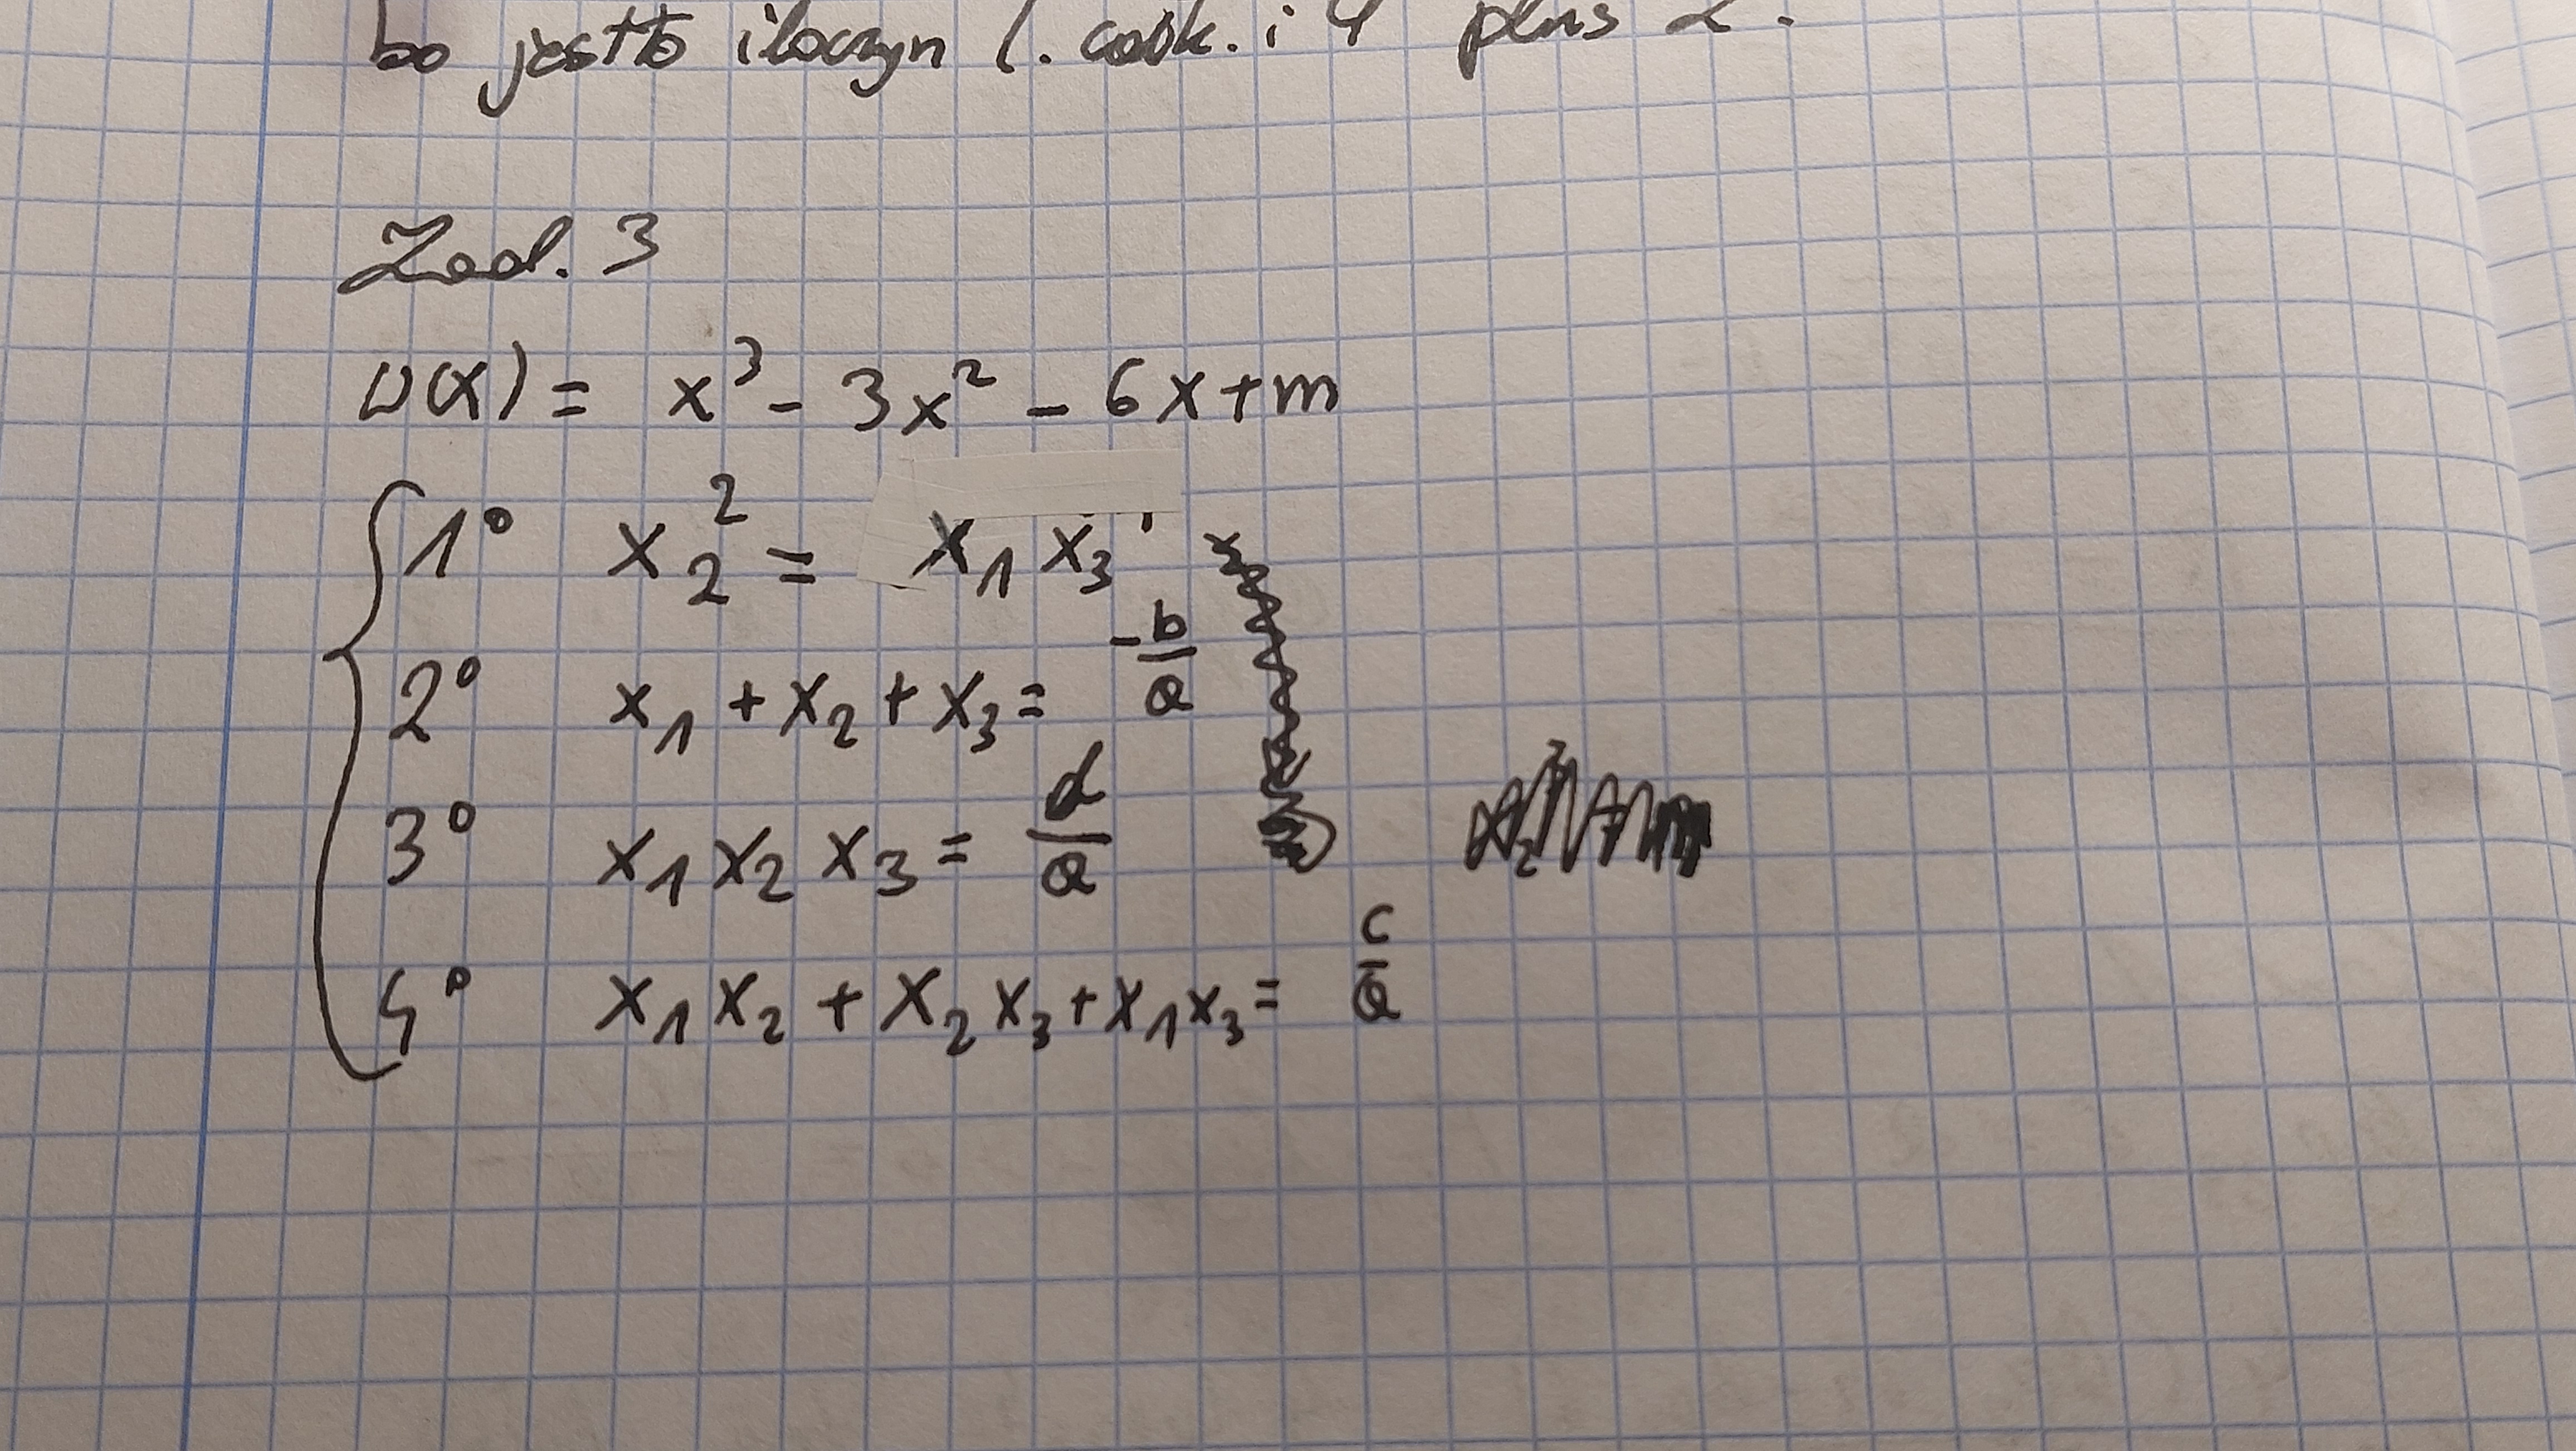 bo jest to iloczyn l. całk. i 4 plus 2.
Zad. 3
W(x) = x³ - 3x² - 6x + m
1° x₂² = x₁ x₃
2° x₁ + x₂ + x₃ = -b/a
3° x₁ x₂ x₃ = d/a
4° x₁ x₂ + x₂ x₃ + x₁ x₃ = c/a